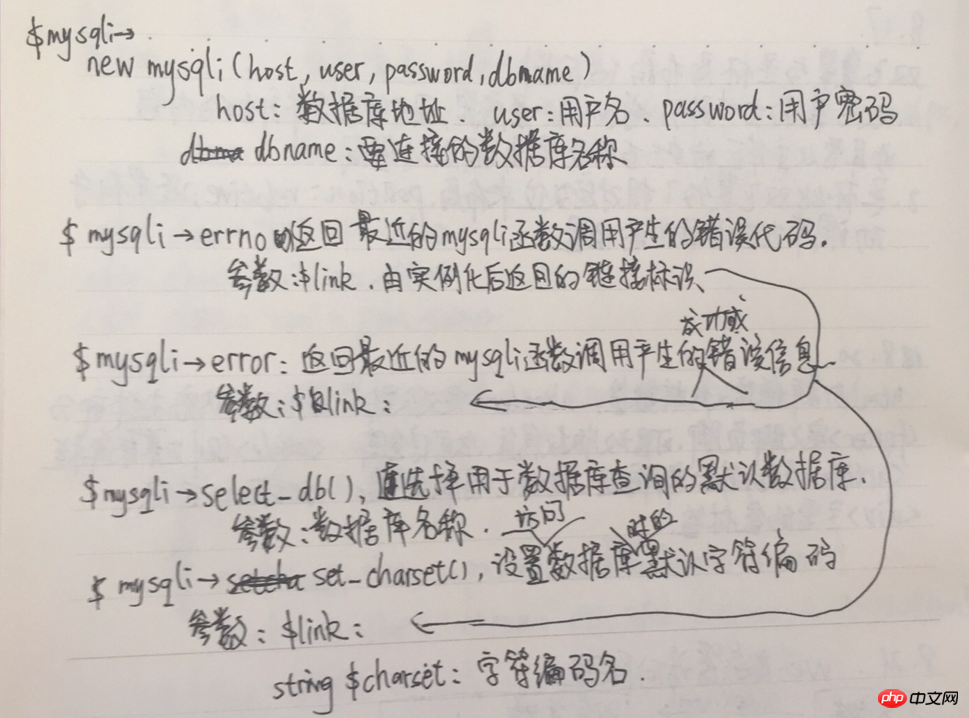 $mysqli→
new mysqli(host,user,password,dbname)
host:数据库地址. user:用户名. password:用户密码
dbname:要连接的数据库名称
$mysqli→errno返回最近的mysqli函数调用产生的错误代码.
参数:$link.由实例化后返回的链接标识、
成功或
$mysqli→error:返回最近的mysqli函数调用产生的错误信息
参数:$link:
$mysqli→select_db(),选择用于数据库查询的默认数据库.
参数:数据库名称.
访问 时的
$mysqli→set_charset(),设置数据库默认字符编码
参数:$link:
string $charset:字符编码名.
php中文网